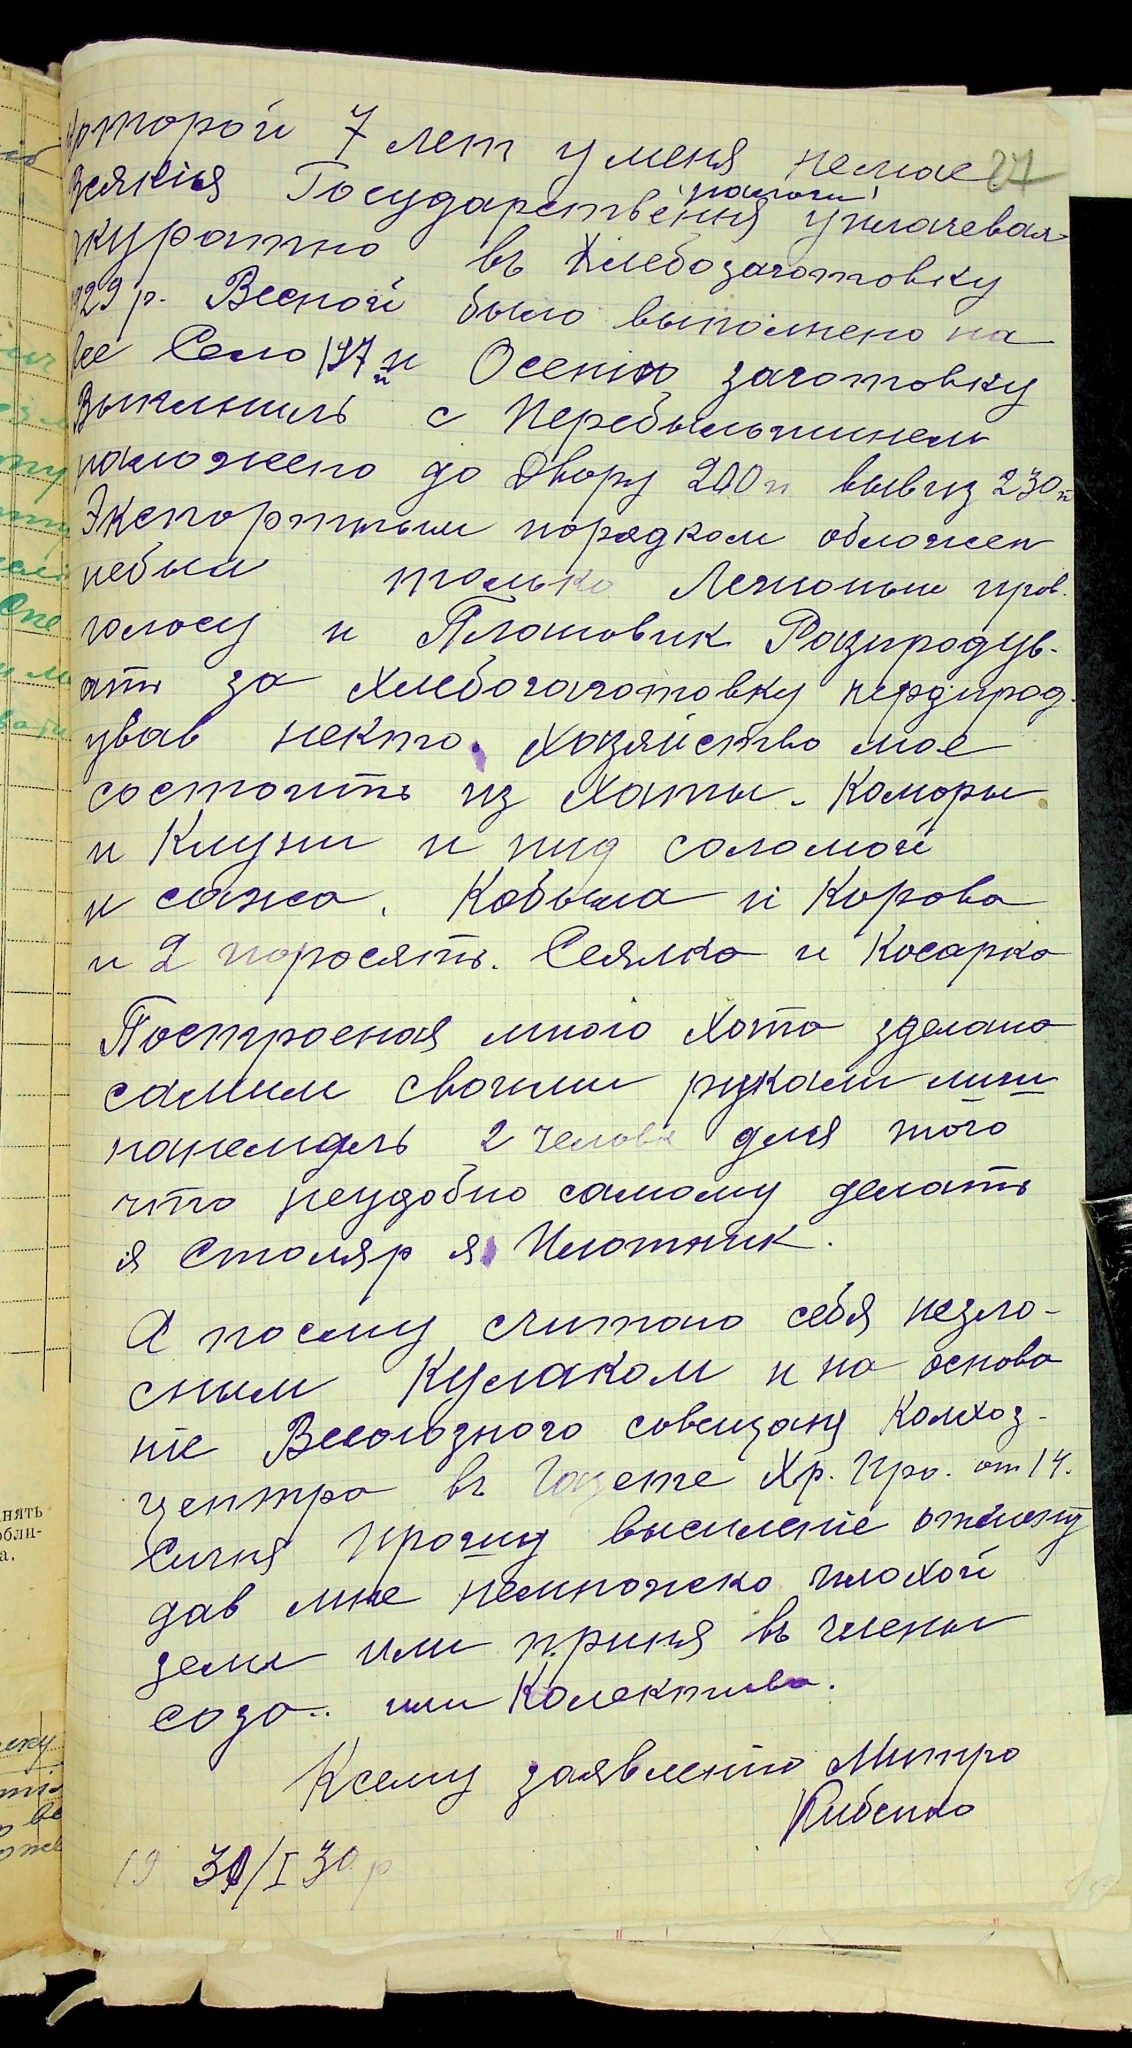 которой 7 лет у меня немае 27
Всякия Государственыя налоги уплачевал
акуратно въ Хлебозаготовку
1929 р. Весной было выполнено на
все Село 197 п Осению заготовку
наложено до двору 200 п вывиз 230 п
Экспортным порядком обложен
небыл только
голосу и Плановик Разпродув-
ать за хлебозаготовку нерзпрод-
ував некто. Хозяйство мое
состоить из хаты. Коморы
и Клуни и пид соломой
и сажа. Кобыла и Корова
и 2 поросять. Сеялка и Косарка
Построеная мною хата зделана
самим своими руками лиш
нанемалъ 2 челов для того
что неудобно самому делать
я Столяр я Плотник.
А посему считаю себя незло-
сным Кулаком и на основа
ніе Всесоюзного совещаня Колхоз-
центра въ Газете Хр. Пра. от 14.
Сичня Прошу высиление
дав мне немножско плохой
земли или приня въ члены
соза.. или Колектива.
Ксему заявлению Митро
Кибенко
19 30/I 30 р